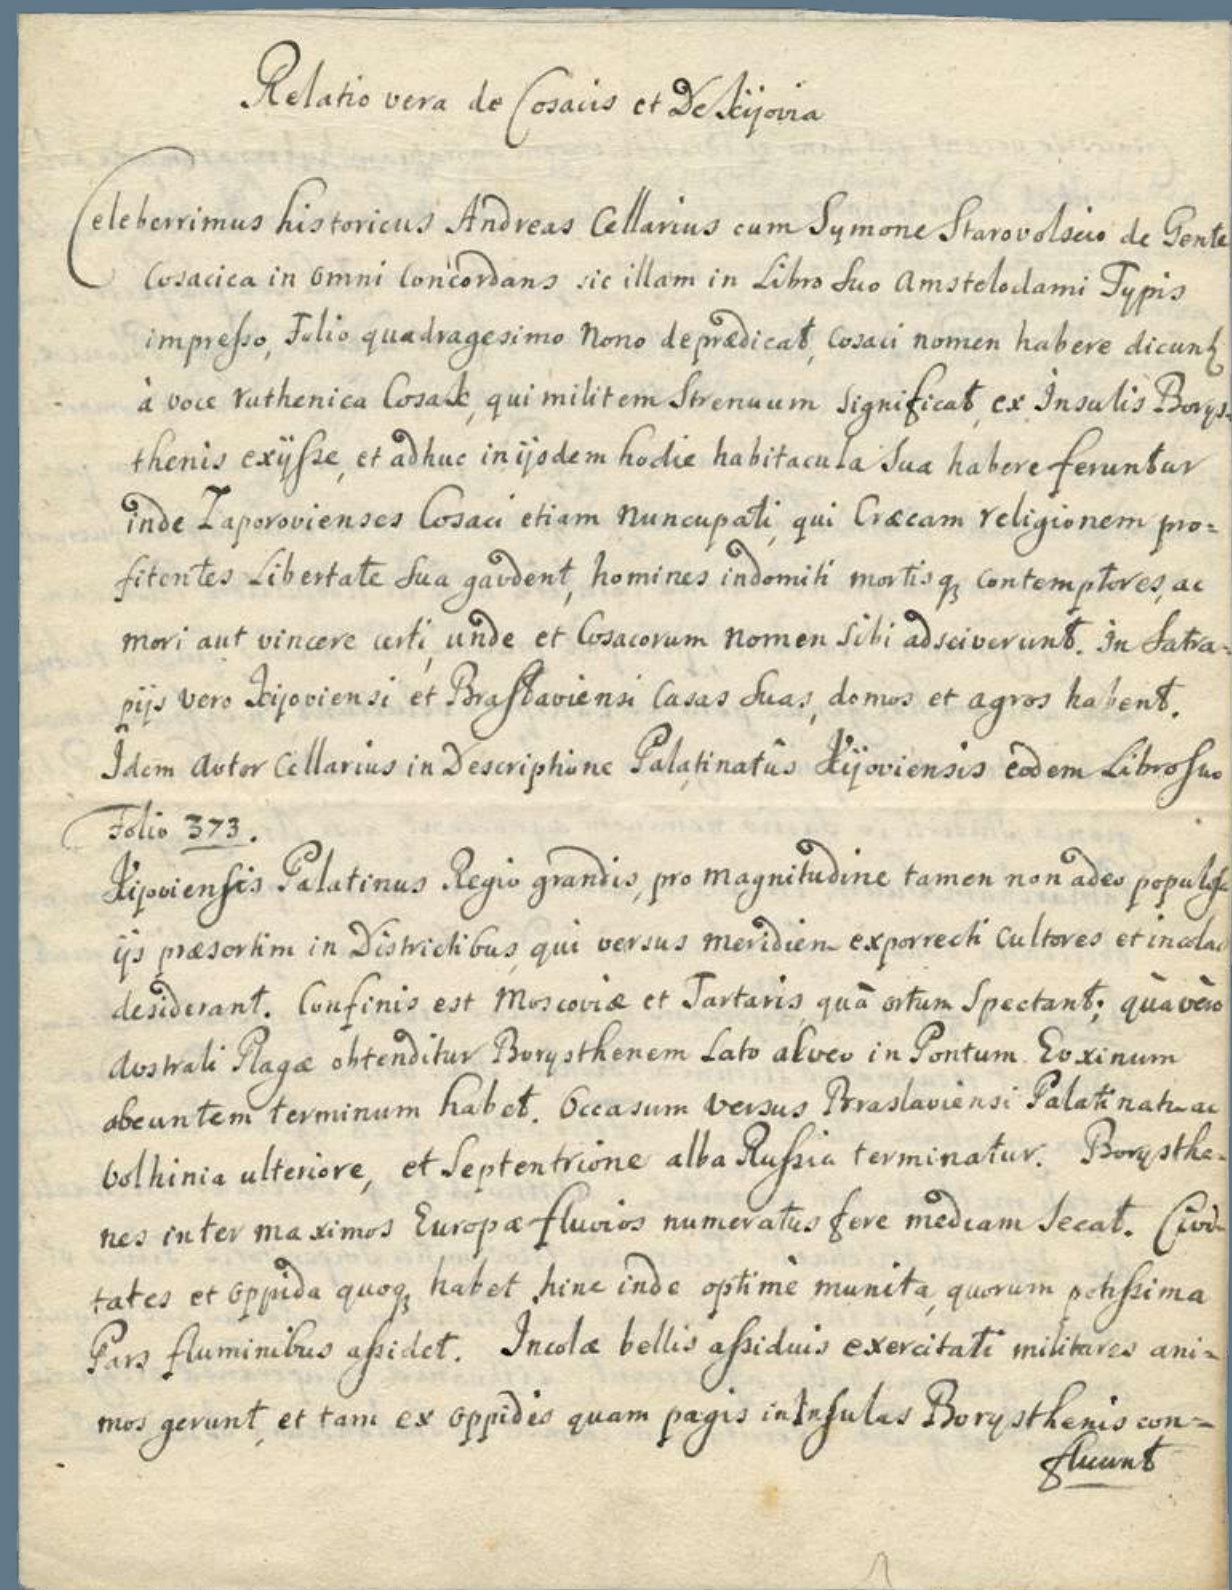 Relatio vera de Cosacis et De Kijovia
Celeberrimus historicus Andreas Cellarius cum Symone Starovolscio de Gente
Cosacica in omni Concordans sic illam in Libro Suo Amstelodami Typis
impresso, Folio quadragesimo Nono deprædicat, Cosaci nomen habere dicuntʒ
à voce ruthenica Cosak, qui militem Strenuum Significat, ex Insulis Borys-
thenis exijsse, et adhuc in ijsdem hodie habitacula Sua habere feruntur
inde Zaporovienses Cosaci etiam Nuncupati, qui Græcam religionem pro=
fitentes Libertate Sua gavdent, homines indomiti mortisqʒ contemptores, ac
mori aut vincere certi, unde et Cosacorum Nomen Sibi adsciverunt. In Satra=
pijs vero Kijoviensi et Braslaviensi Casas Suas, domos et agros habent.
Idem Avtor Cellarius in Descriptione Palatinatûs Kijoviensis eôdem Libro Suo
Folio 373.
Kijoviensis Palatinus Regio grandis, pro magnitudine tamen non adeo populosa
ijs præsertim in Districtibus, qui versus meridiem exporrecti Cultores et incolas
desiderant. Confinis est Moscoviæ et Tartaris, quâ ortum Spectant; quà vèro
Avstrali Plagæ obtenditur Borysthenem Lato alveo in Pontum Evxinum
abeuntem terminum habet. Occasum versus Braslaviensi Palatinatu ac
Volhinia ulteriore, et Septentrione alba Russia terminatur. Borysthe-
nes inter maximos Europæ fluvios numeratus fere mediam Secat. Civi-
tates et Oppida quoqʒ habet hinc inde optimè munita, quorum potissima
Pars fluminibus assidet. Incolæ bellis assiduis exercitati militares ani=
mos gerunt, et tam ex Oppidis quam pagis in Insulas Borysthenis con=
fluunt